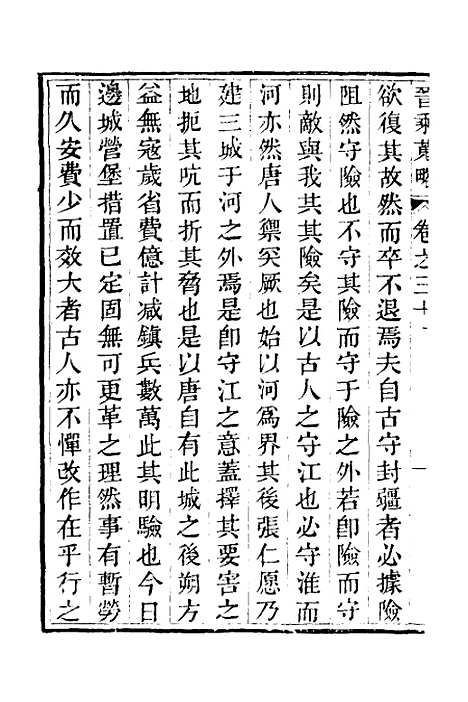 晉乘蒐略 卷之三十
欲復其故然而卒不退焉夫自古守封疆者必據險
阻然守險也不守其險而守于險之外若卽險而守
則敵與我共其險矣是以古人之守江也必守淮而
河亦然唐人禦突厥也始以河爲界其後張仁愿乃
建三城于河之外焉是卽守江之意蓋擇其要害之
地扼其吭而折其脅也是以唐自有此城之後朔方
益無寇歲省費億計减鎮兵數萬此其明驗也今日
邊城營堡措置已定固無可更革之理然事有暫勞
而久安費少而效大者古人亦不憚改作在乎行之